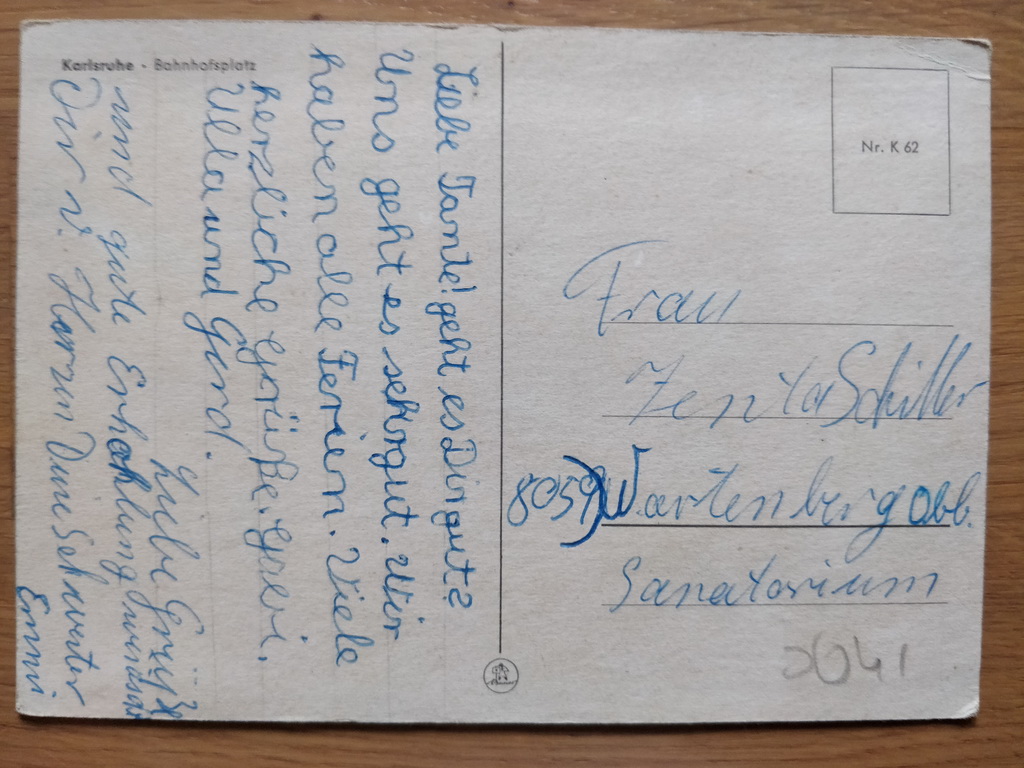 Karlsruhe - Bahnhofsplatz
Liebe Tante! geht es Dir gut?
Uns geht es sehr gut. Wir
haben alle Ferien. Viele
herzliche Grüße. Gabi,
Ulla und Gerd.
Liebe Grüße
und gute Erholung wünschen
Dir v. Herzen Deine Schwester
Emmi
Nr. K 62
Frau
Zenta Schiller
8059 Wartenberg Obb.
Sanatorium